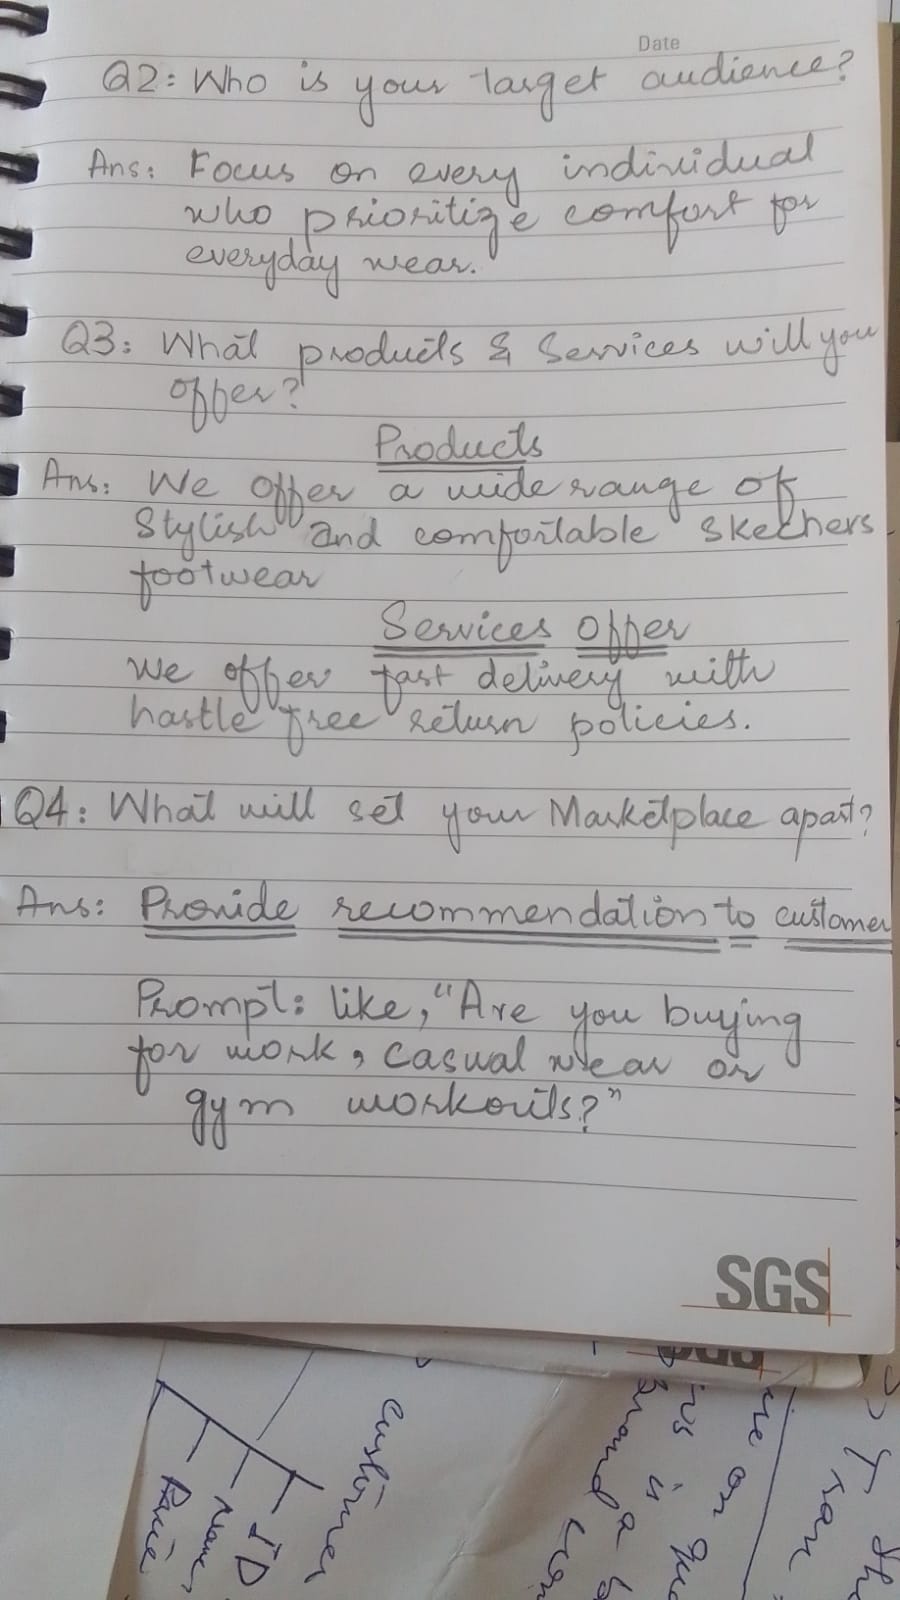 Date
Q2: Who is your target audience?
Ans: Focus on every individual
who prioritize comfort for
everyday wear.
Q3: What products & Services will you
offer?
Products
Ans: We offer a wide range of
Stylish and comfortable Skechers
footwear
Services Offer
We offer fast delivery with
hastle free return policies.
Q4: What will set your Marketplace apart?
Ans: Provide recommendation to customer
Prompt: like, "Are you buying
for work, casual wear or
gym workouts?"
SGS
customer
ID
Name
Price
Brand